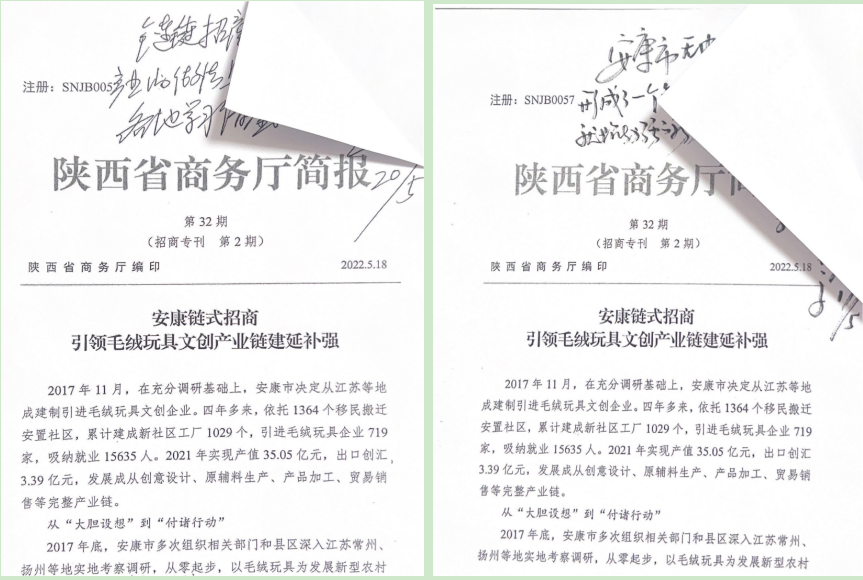 全链链招商
产业的做法
各地学习
20/5
注册：SNJB005
陕西省商务厅简报
第 32 期
（招商专刊　第 2 期）
陕西省商务厅编印 2022.5.18
安康链式招商
引领毛绒玩具文创产业链建延补强
2017 年 11 月，在充分调研基础上，安康市决定从江苏等地
成建制引进毛绒玩具文创企业。四年多来，依托 1364 个移民搬迁
安置社区，累计建成新社区工厂 1029 个，引进毛绒玩具企业 719
家，吸纳就业 15635 人。2021 年实现产值 35.05 亿元，出口创汇
3.39 亿元，发展成从创意设计、原辅料生产、产品加工、贸易销
售等完整产业链。
从“大胆设想”到“付诸行动”
2017 年底，安康市多次组织相关部门和县区深入江苏常州、
扬州等地实地考察调研，从零起步，以毛绒玩具为发展新型农村
安康市无中
形成了一个
注册：SNJB0057
陕西省商务厅简
第 32 期
（招商专刊　第 2 期）
陕西省商务厅编印 2022.5.18
安康链式招商
引领毛绒玩具文创产业链建延补强
2017 年 11 月，在充分调研基础上，安康市决定从江苏等地
成建制引进毛绒玩具文创企业。四年多来，依托 1364 个移民搬迁
安置社区，累计建成新社区工厂 1029 个，引进毛绒玩具企业 719
家，吸纳就业 15635 人。2021 年实现产值 35.05 亿元，出口创汇
3.39 亿元，发展成从创意设计、原辅料生产、产品加工、贸易销
售等完整产业链。
从“大胆设想”到“付诸行动”
2017 年底，安康市多次组织相关部门和县区深入江苏常州、
扬州等地实地考察调研，从零起步，以毛绒玩具为发展新型农村